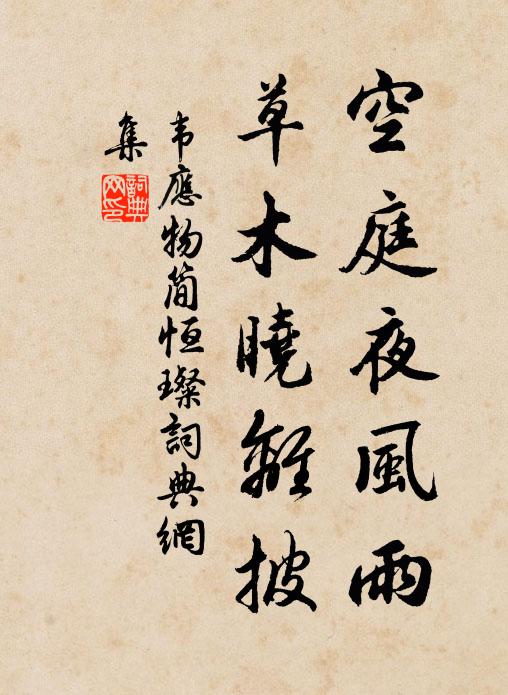 空庭夜風雨
草木曉離披
韦應物简恒璨詞典網
集
詞典
网印